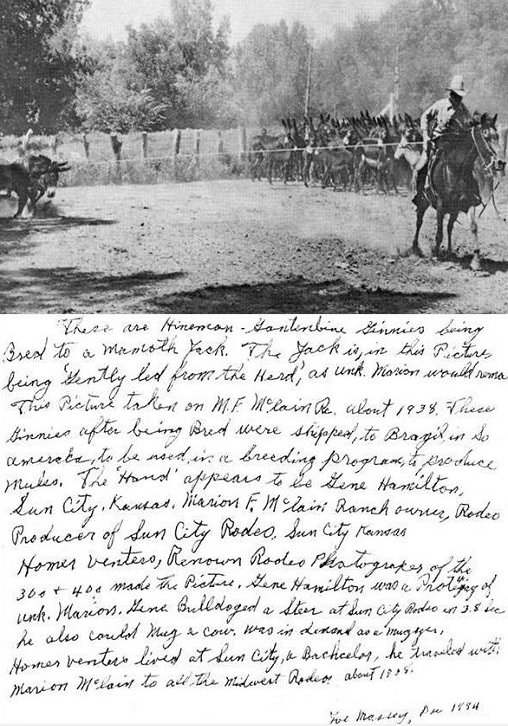 These are Hineman - Gantenbine Ginnies being
Bred to a Mamoth Jack. The Jack is, in this Picture,
being 'Gently led from the Herd', as unk. Marion would rema
This Picture taken on M.F. McLain Ra. about 1938. These
Ginnies after being Bred were shipped, to Brazil, in So
america, to be used, in a breeding program, to produce
mules. The 'Hand' appears to be Gene Hamilton,
Sun City, Kansas. Marion F. McLain Ranch owner, Rodeo
Producer of Sun City Rodeo. Sun City Kansas
Homer Venters, Renown Rodeo Photograper of the
30s + 40s made the Picture. Gene Hamilton was a of
unk. Marion. Gene Bulldoged a Steer at Sun City Rodeo in 38
he also could Mug a cow. was in demand as a mugger.
Homer Venters lived at Sun City, a Bachelor, he traveled with
Marion McLain to all the midwest Rodeos about 1938.
Massey, 1994